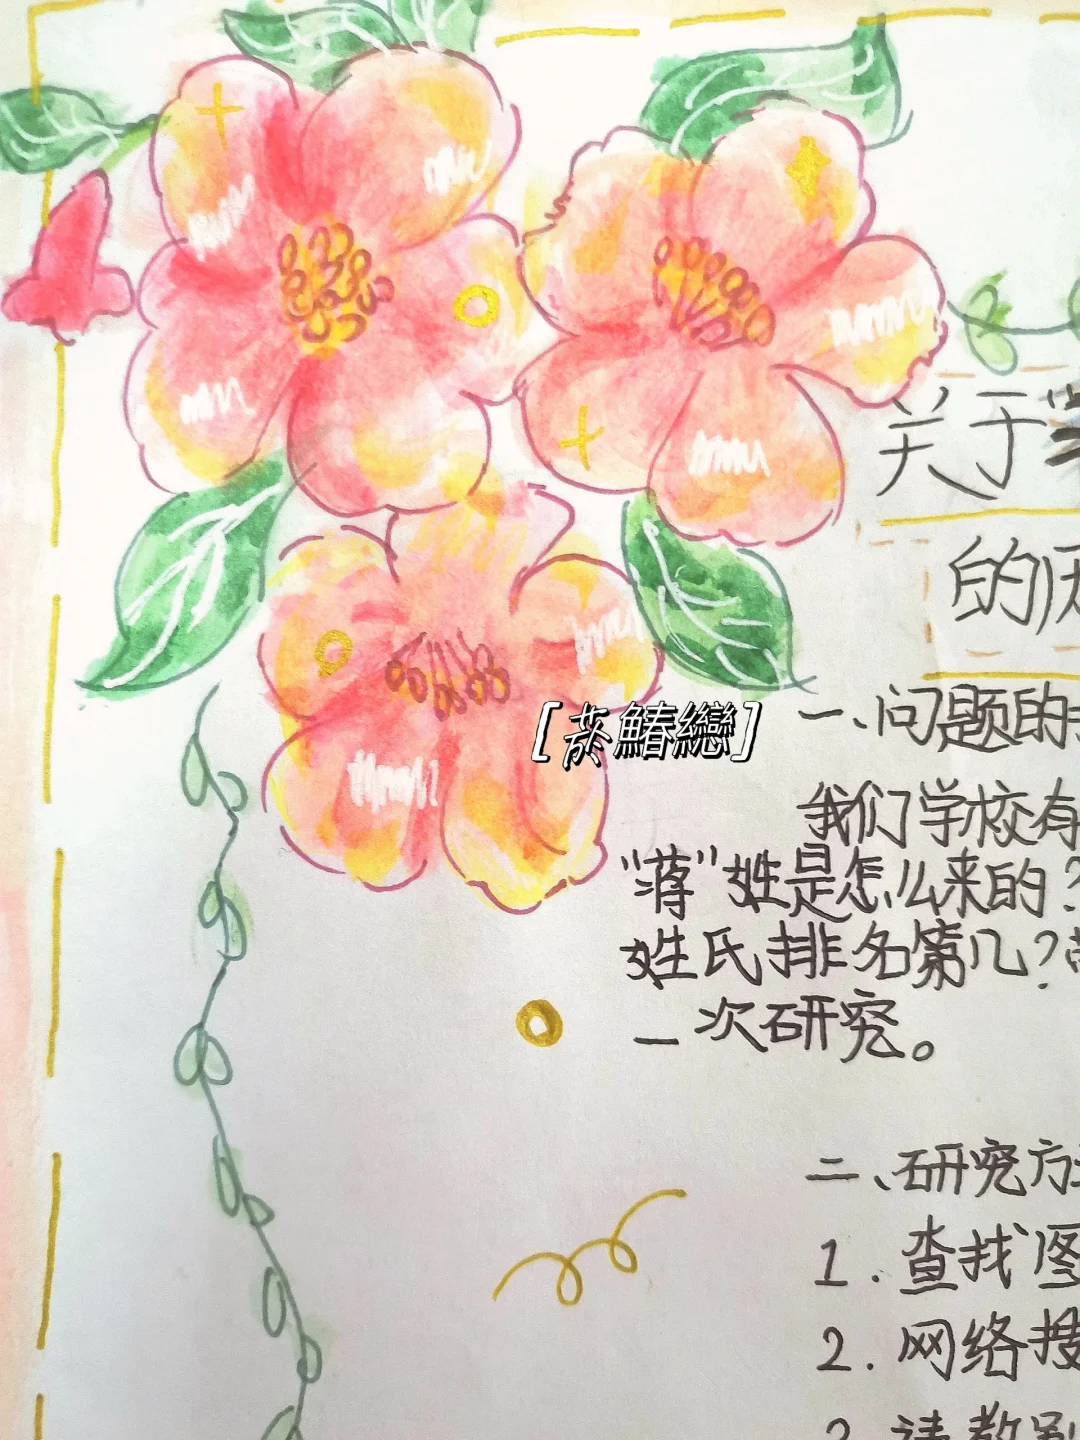 关于
的历
一、问题的
我们学校有
“蒋”姓是怎么来的？
姓氏排名第几？
一次研究。
二、研究方法
1.查找图
2.网络搜
3.请教别
[菸鰆戀]